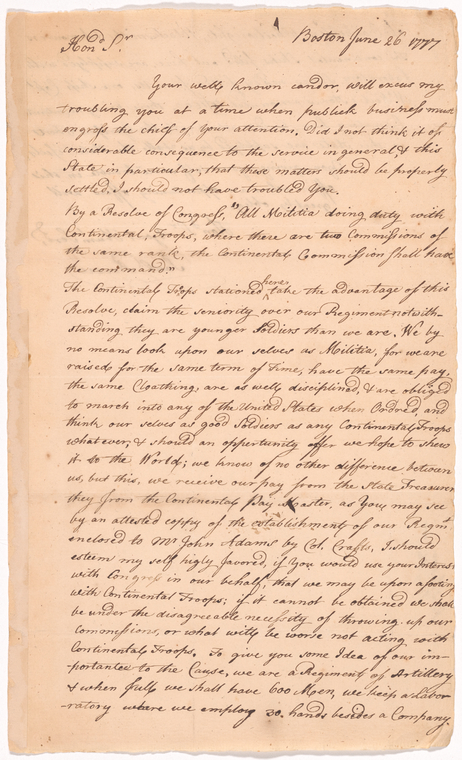 Boston June 26 1777
Hond Sr
Your well known candor, will excus my
troubling you at a time when publick business must
engross the chief of your attention. Did I not think it of
considerable consequence to the service in general, & this
State in particular, that these matters should be properly
settled, I should not have troubled You.
By a Resolve of Congress, "All Militia doing duty with
Continental Troops, where there are two Commissions of
the same rank, the Continental Commission shall have
the command."
The Continental Troops stationed here take the advantage of this
Resolve, claim the seniority over our Regiment notwith-
standing they are younger Soldiers than we are. We by
no means look upon our selves as Militia, for we are
raised for the same term of Time, have the same pay,
the same Cloathing, are as well disciplined, & are obliged
to march into any of the United States when Ordred, and
think our selves as good Soldiers as any Continental Troops
whatever, & should an opportunity offer we hope to shew
it to the World; we know of no other difference between
us, but this, we receive our pay from the State Treasurer
they from the Continental Pay Master, as You may see
by an attested copy of the establishment of our Regmt
enclosed to Mr John Adams by Col. Crafts, I should
esteem my self higly favored, if You would use your Interest
with Congress in our behalf, that we may be upon a footing
with Continental Troops; if it cannot be obtained we shall
be under the disagreeable necessity of throwing up our
commissions, or what will be worse not acting with
Continental Troops. To give you some Idea of our im-
portance to the Cause, we are a Regiment of Artillery
& when full we shall have 600 Men, we keep a Labor-
-ratory where we employ 30 hands besides a Company